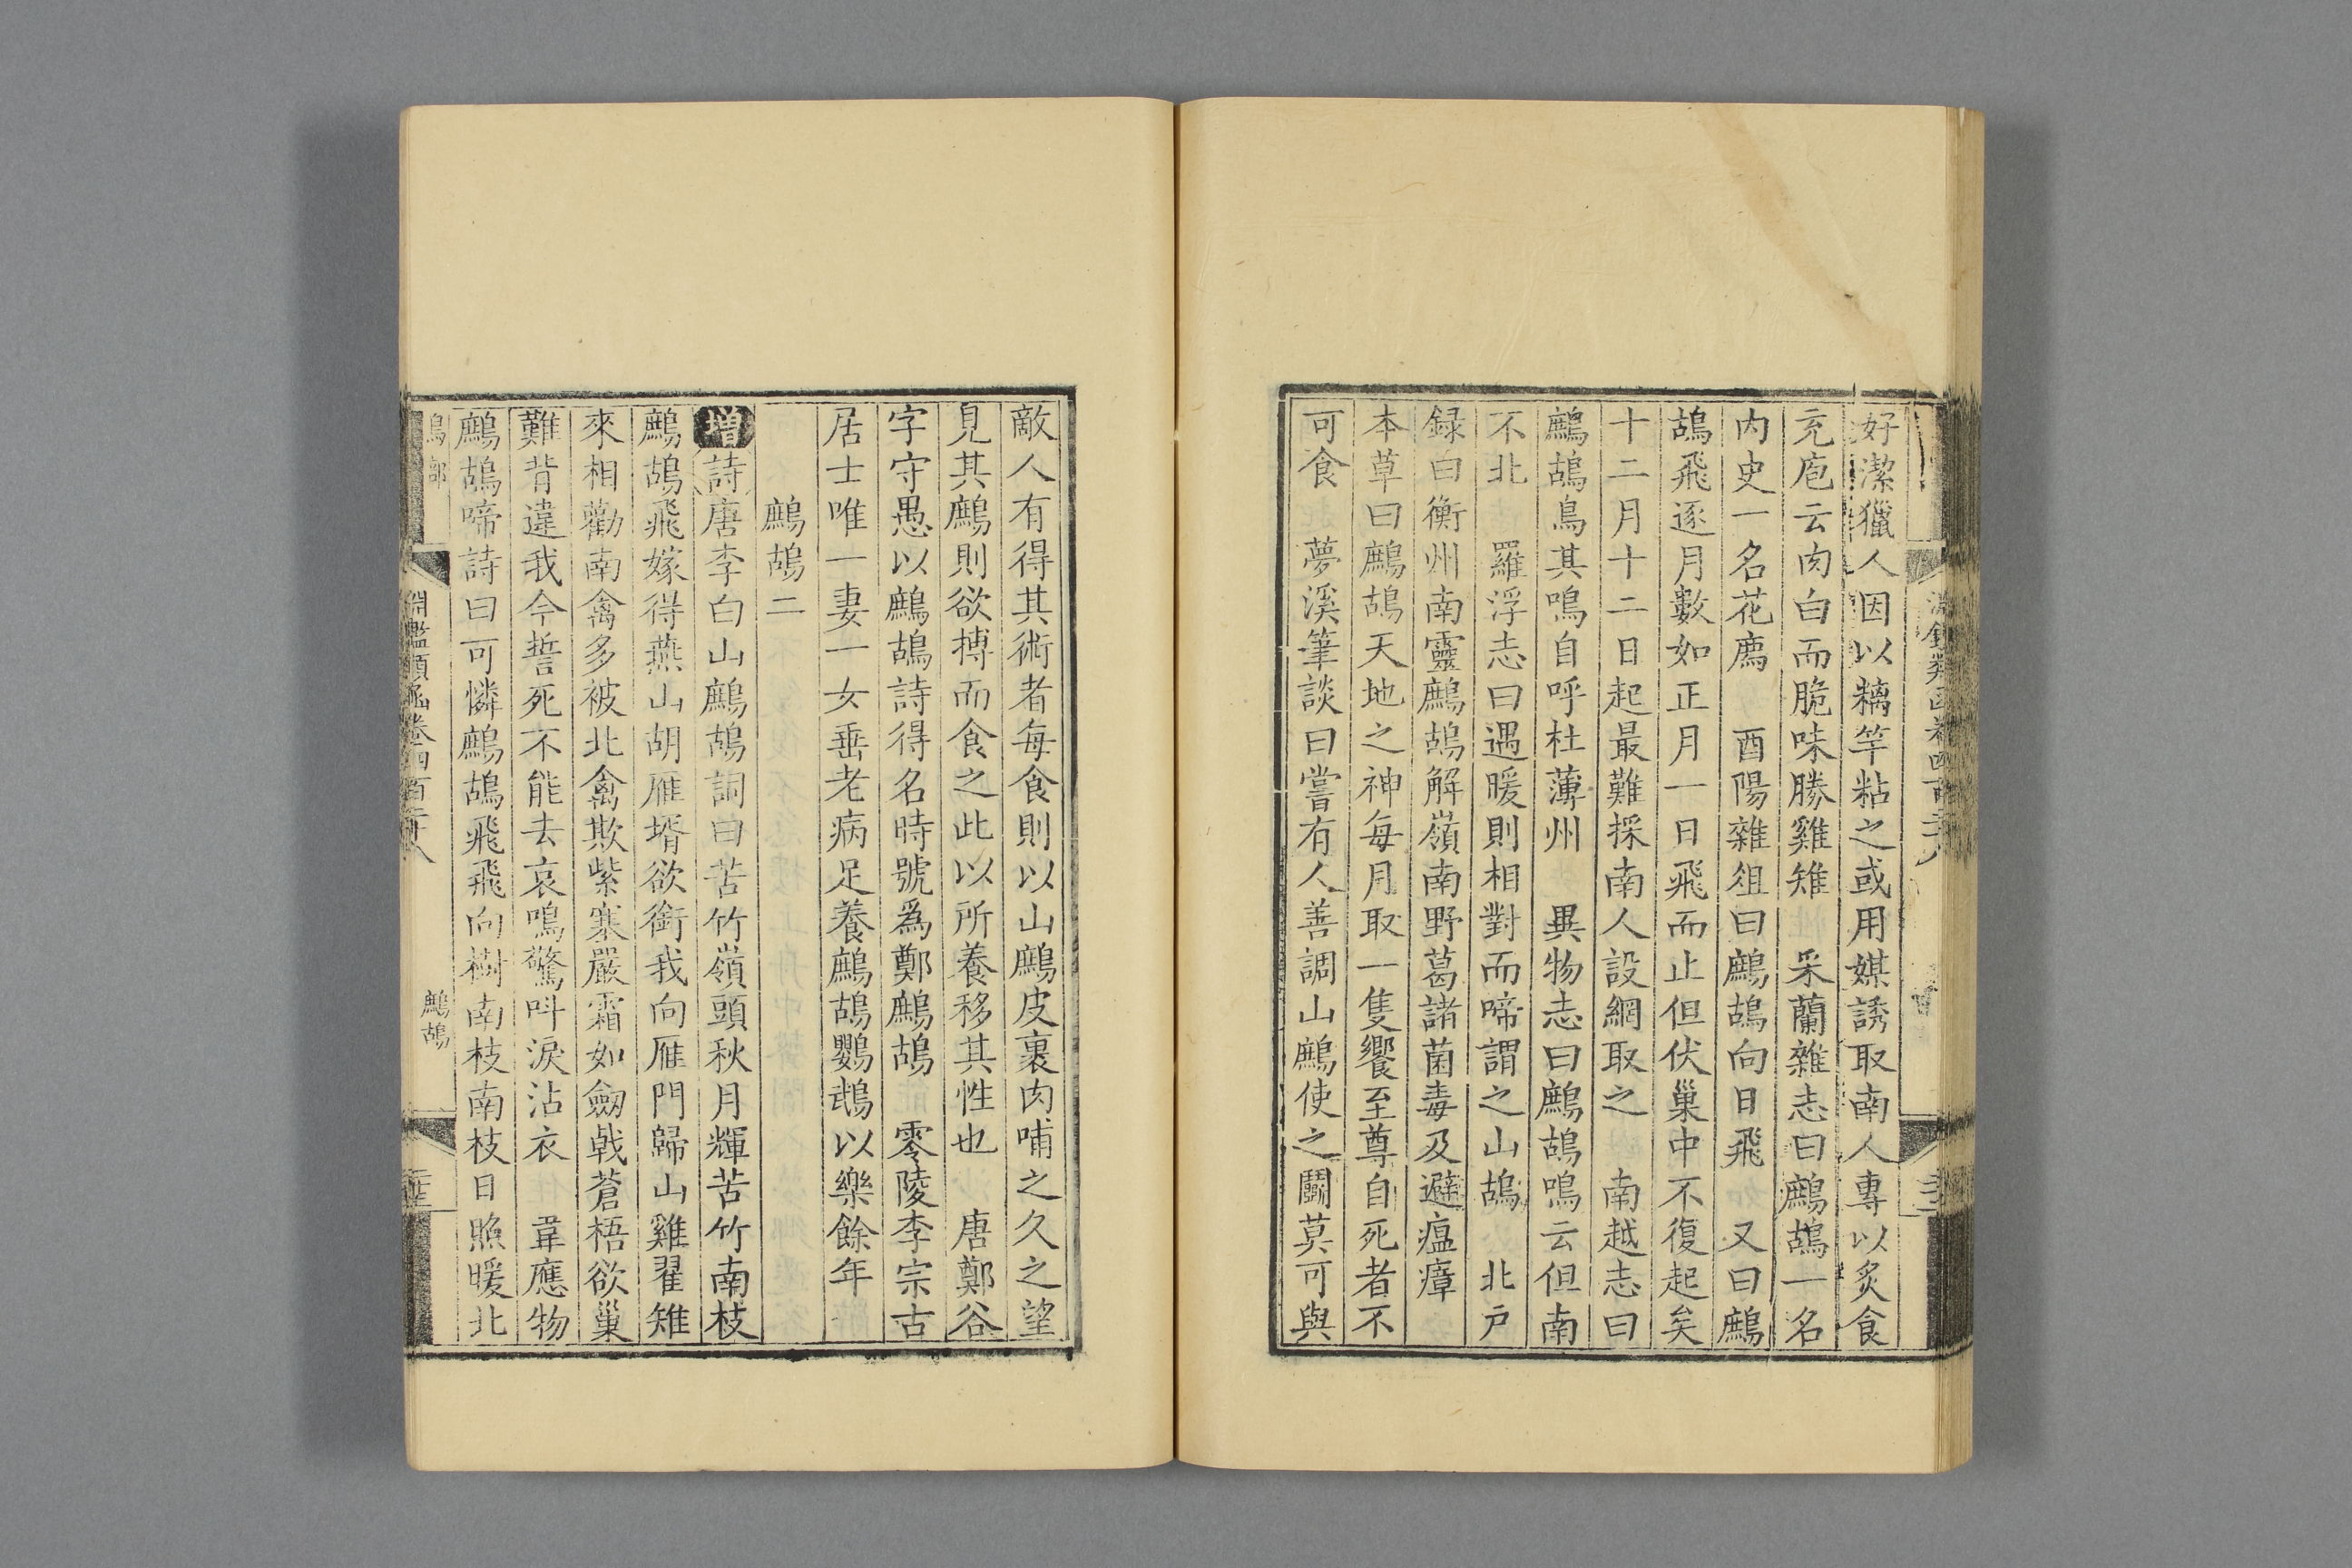 好潔獵人因以𥻿竿粘之或用媒誘取南人專以炙食
充庖云肉白而脆味勝雞雉　采蘭雜志曰鷓鴣一名
内史一名花廌　酉陽雜俎曰鷓鴣向日飛　又曰鷓
鴣飛逐月數如正月一日飛而止但伏巢中不復起矣
十二月十二日起最難採南人設網取之　南越志曰
鷓鴣鳥其鳴自呼杜薄州　異物志曰鷓鴣鳴云但南
不北　羅浮志曰遇暖則相對而啼謂之山鴣　北戸
録曰衡州南靈鷓鴣解嶺南野葛諸菌毒及避瘟瘴
本草曰鷓鴣天地之神每月取一隻饗至尊自死者不
可食　夢溪筆談曰嘗有人善調山鷓使之鬭莫可與
敵人有得其術者每食則以山鷓皮裹肉哺之久之望
見其鷓則欲搏而食之此以所養移其性也　唐鄭谷
字守愚以鷓鴣詩得名時號爲鄭鷓鴣　零陵李宗古
居士唯一妻一女垂老病足養鷓鴣鸚鵡以樂餘年
鷓鴣二
增詩唐李白山鷓鴣詞曰苦竹嶺頭秋月輝苦竹南枝
鷓鴣飛嫁得燕山胡雁壻欲銜我向雁門歸山雞翟雉
來相勸南禽多被北禽欺紫塞嚴霜如劒戟蒼梧欲巢
難背違我今誓死不能去哀鳴驚呌淚沾衣　韋應物
鷓鴣啼詩曰可憐鷓鴣飛飛向樹南枝南枝日照暖北
鳥部
淵鑑類函卷四百二十八
鷓鴣